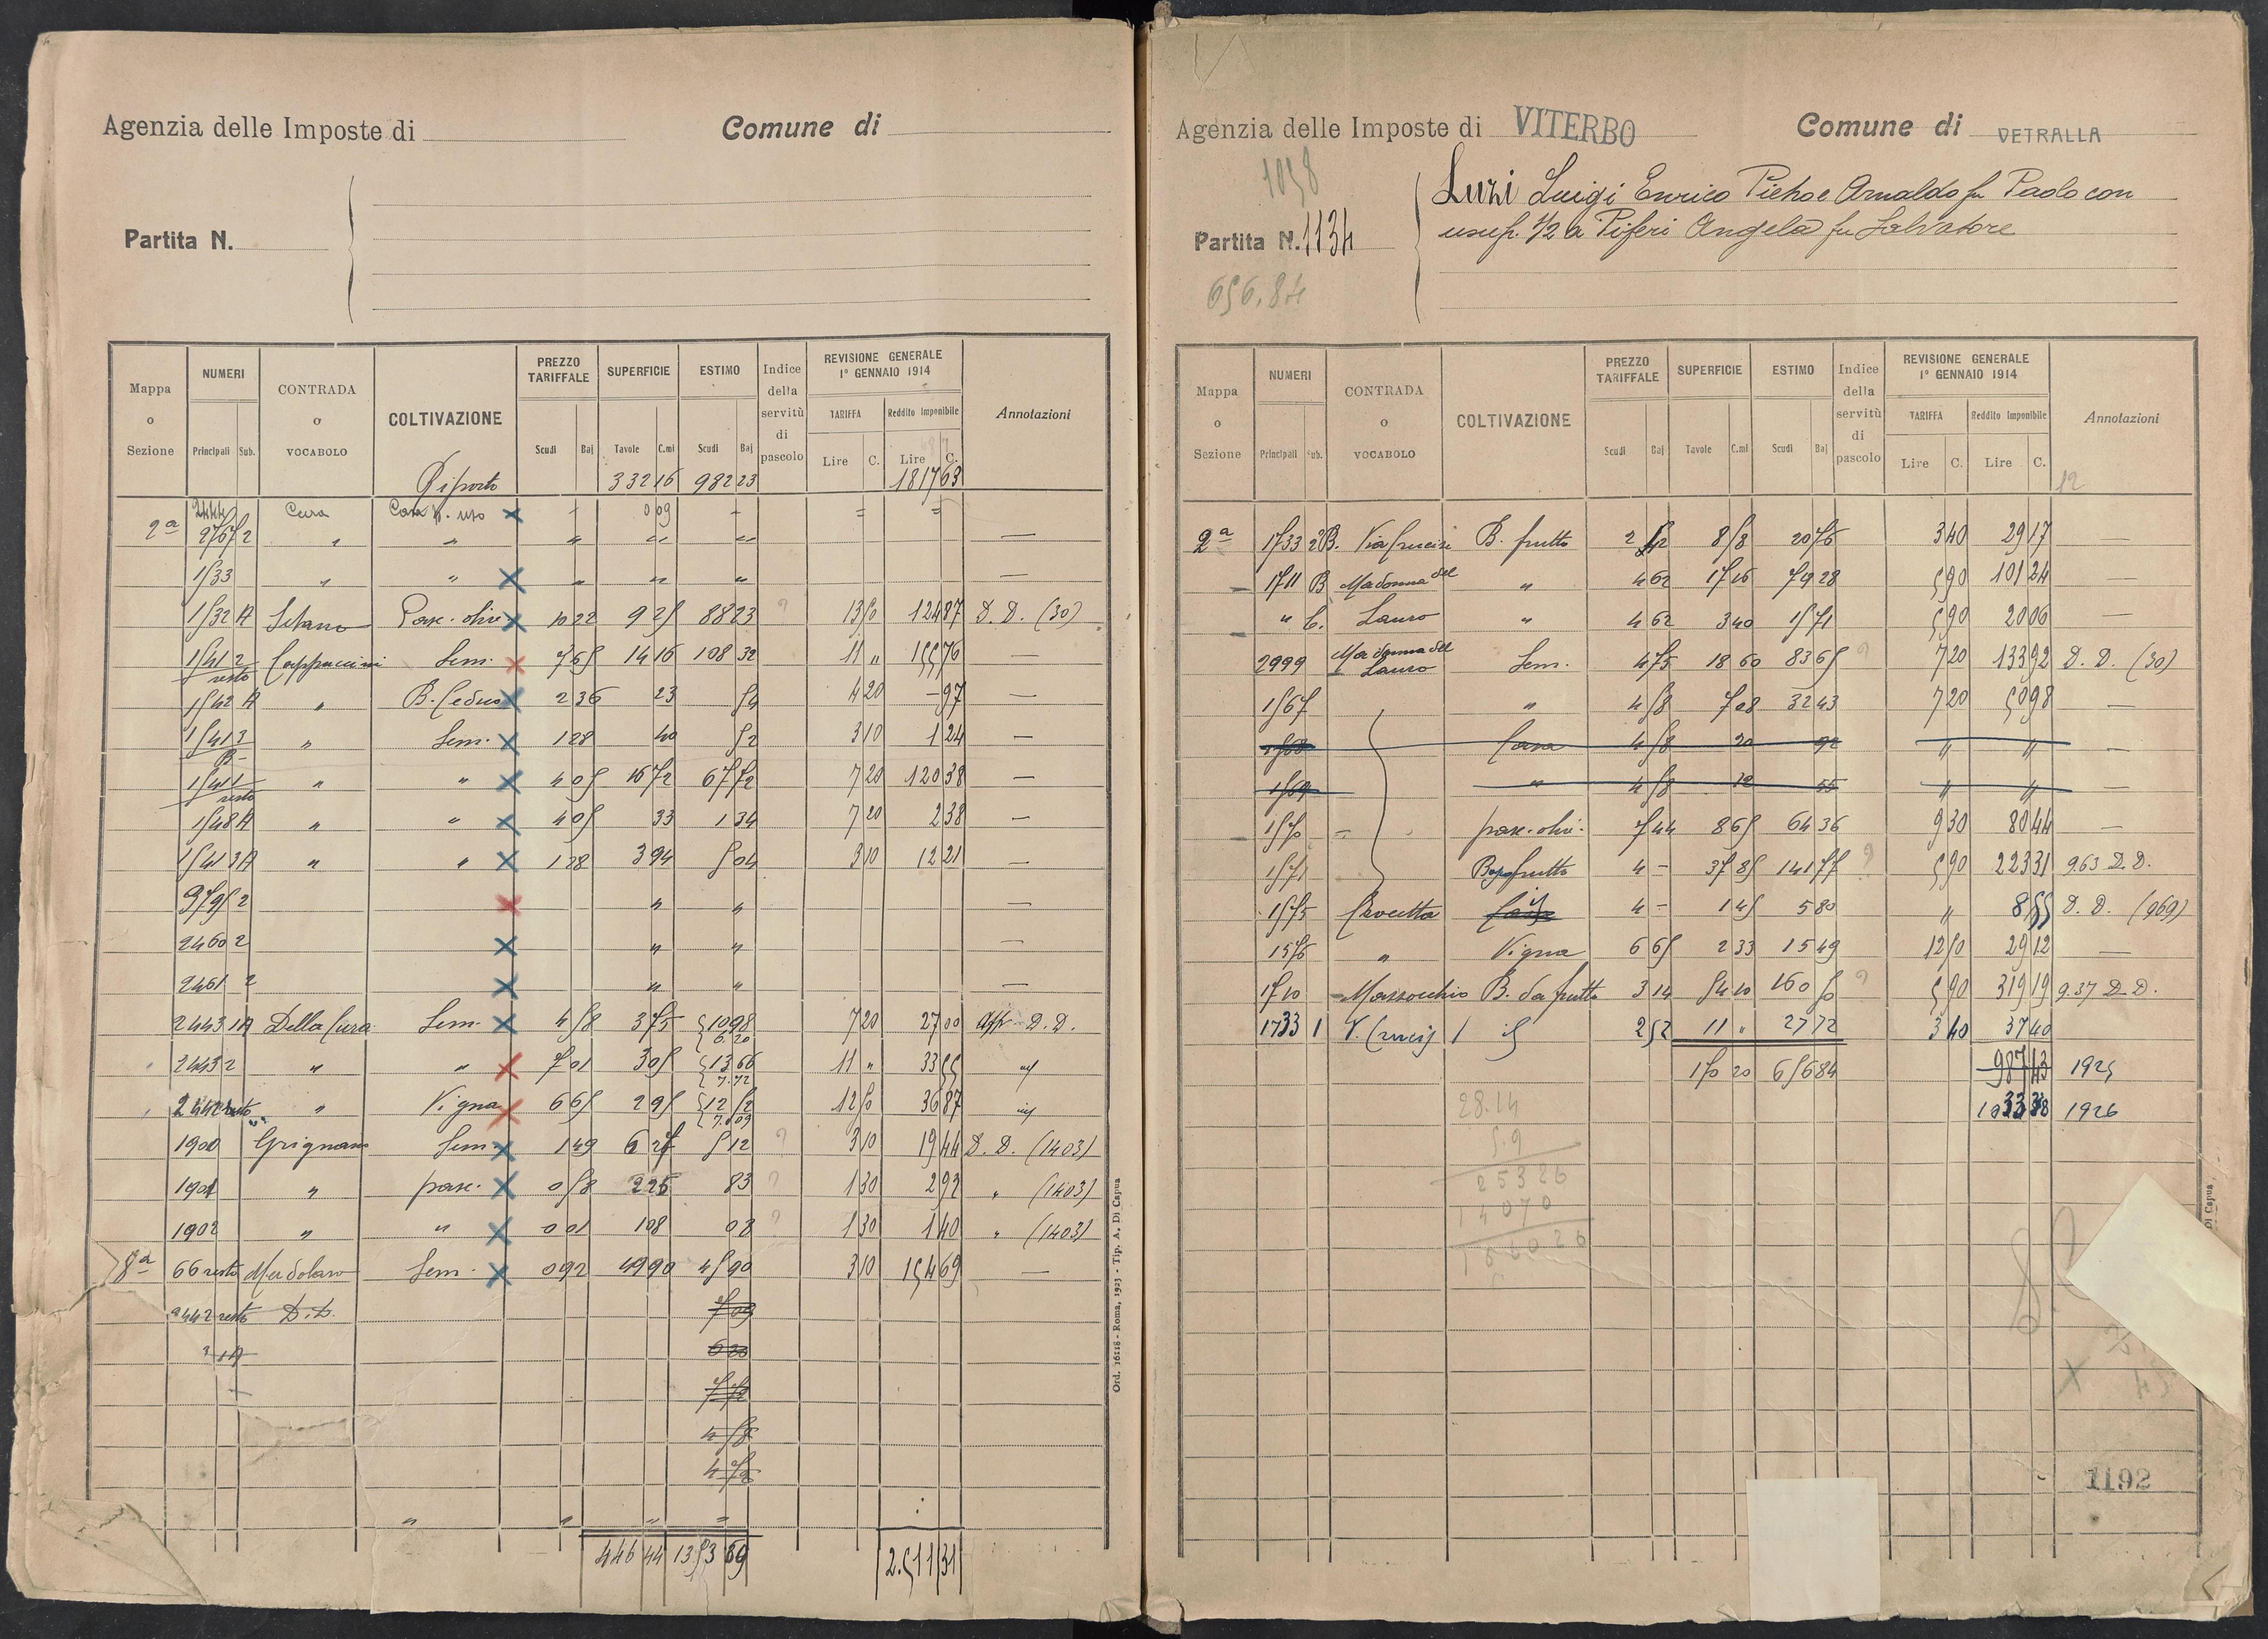 Agenzia delle Imposte di
Comune di
Partita N.
Mappa o Sezione
NUMERI
Principali Sub.
CONTRADA o VOCABOLO
COLTIVAZIONE
PREZZO TARIFFALE
Scudi Baj
SUPERFICIE
Tavole C.mi
ESTIMO
Scudi Baj
Indice della servitù di pascolo
REVISIONE GENERALE 1° GENNAIO 1914
TARIFFA
Lire C.
Reddito Imponibile
Lire C.
Annotazioni
Riporto 332 16 982 23 1817 63
2444 Cura Casa p. uso 0 09
2a 2767 2 " " " " " —
1533 " " " " " —
1532 A Pasc. oliv. 10 22 9 25 88 23 ? 13 50 124 87 D. D. (30)
1541 2 resto Cappuccini Sem. 7 65 14 16 108 32 11 " 155 76 —
1542 A " B. Ceduo 2 36 23 54 4 20 – 97 —
1541 3 B " Sem. 1 28 40 52 3 10 1 24 —
1541 1 resto " " 4 05 16 72 67 72 7 20 120 38 —
1548 A " " 4 05 33 1 34 7 20 2 38 —
1541 3A " " 1 28 3 94 5 04 3 10 12 21 —
9795 2 " " —
2460 2 " " —
2461 2 " " —
2443 1A Della Cura Sem. 4 58 3 75 10 98 6.20 7 20 27 00 App. D. D.
2443 2 " " 7 01 3 05 13 66 7.72 11 " 33 55
2442 resto " Vigna 6 65 2 95 12 52 7.09 12 50 36 87
1900 Grignano Sem. 1 49 6 27 5 12 ? 3 10 19 44 D. D. (1403)
1901 " pasc. 0 58 2 25 83 ? 1 30 2 92 " (1403)
1902 " " 0 01 1 08 08 ? 1 30 1 40 " (1403)
8a 66 resto Sem. 0 92 49 90 45 90 3 10 154 69 —
2442 resto D. D. 7 09
" 1A 6 20
7 72
4 58
4 72
" " " "
446 44 1353 69 2.511 31
Ord. 16118 - Roma, 1923 - Tip. A. Di Capua
Agenzia delle Imposte di VITERBO
Comune di VETRALLA
1058
Partita N. 1134
656.84
Luzi Luigi Enrico Pietro e Arnaldo fu Paolo con
usuf. 1/2 a Piferi Angela fu Salvatore
Mappa o Sezione
NUMERI
Principali Sub.
CONTRADA o VOCABOLO
COLTIVAZIONE
PREZZO TARIFFALE
Scudi Baj
SUPERFICIE
Tavole C.mi
ESTIMO
Scudi Baj
Indice della servitù di pascolo
REVISIONE GENERALE 1° GENNAIO 1914
TARIFFA
Lire C.
Reddito Imponibile
Lire C.
Annotazioni
12
2a 1733 2B. Via Crucis B. frutto 2 52 8 58 20 76 3 40 29 17 —
1711 B Madonna del " 4 62 17 16 79 28 5 90 101 24 —
" C. Lauro " 4 62 3 40 15 71 5 90 20 06 —
2999 Madonna del Lauro Sem. 4 75 18 60 83 65 ? 7 20 133 92 D. D. (30)
1567 " 4 58 7 08 32 43 7 20 50 98 —
1568 Casa 4 58 20 92 " " —
1569 " 4 58 12 55 " " —
1570 pasc. oliv. 7 44 8 65 64 36 9 30 80 44 —
1571 Bosco frutto 4 – 37 85 141 77 ? 5 90 223 31 9.63 D. D.
1575 Crocetta 4 – 1 45 5 80 " 8 55 D. D. (969)
1576 " Vigna 6 65 2 33 15 49 12 50 29 12 —
1710 Mazzocchio B. da frutto 3 14 54 10 160 50 ? 5 90 319 19 9.37 D. D.
1733 1 V. Crucis 2 52 11 " 27 72 3 40 37 40
170 20 656 84 987 43 1925
1033 38 1926
28.14
5.9
25326
14070
166026
1192
Di Capua